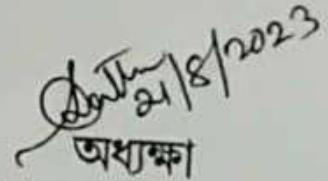 21/8/2023
অধ্যক্ষা